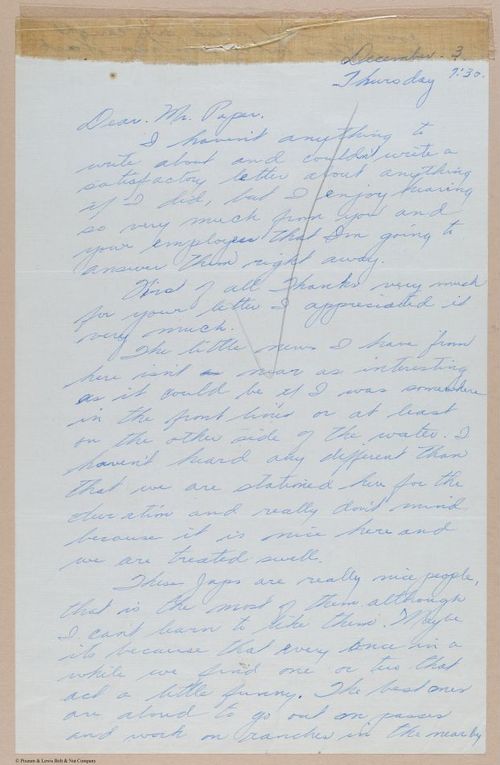 December. 3
Thursday 7:30.
Dear. Mr. Paper.
I haven't anything to
write about and couldn't write a
satisfactory letter about anything
if I did, but I enjoy hearing
so very much from you and
your employees that I'm going to
answer them right away.
First of all Thanks very much
for your letter I appreciated it
very much.
The little news I have from
here isn't near as interesting
as it could be if I was somewhere
in the front lines or at least
on the other side of the water. I
haven't heard any different than
that we are stationed here for the
duration and really don't mind
because it is nice here and
we are treated swell.
These Japs are really nice people,
that is the most of them although
I can't learn to like them. Maybe
its because that every once in a
while we find one or two that
act a little funny. The best ones
are aloud to go out on passes
and work on ranches in the nearby
© Pearson & Lewis Bolt & Nut Company